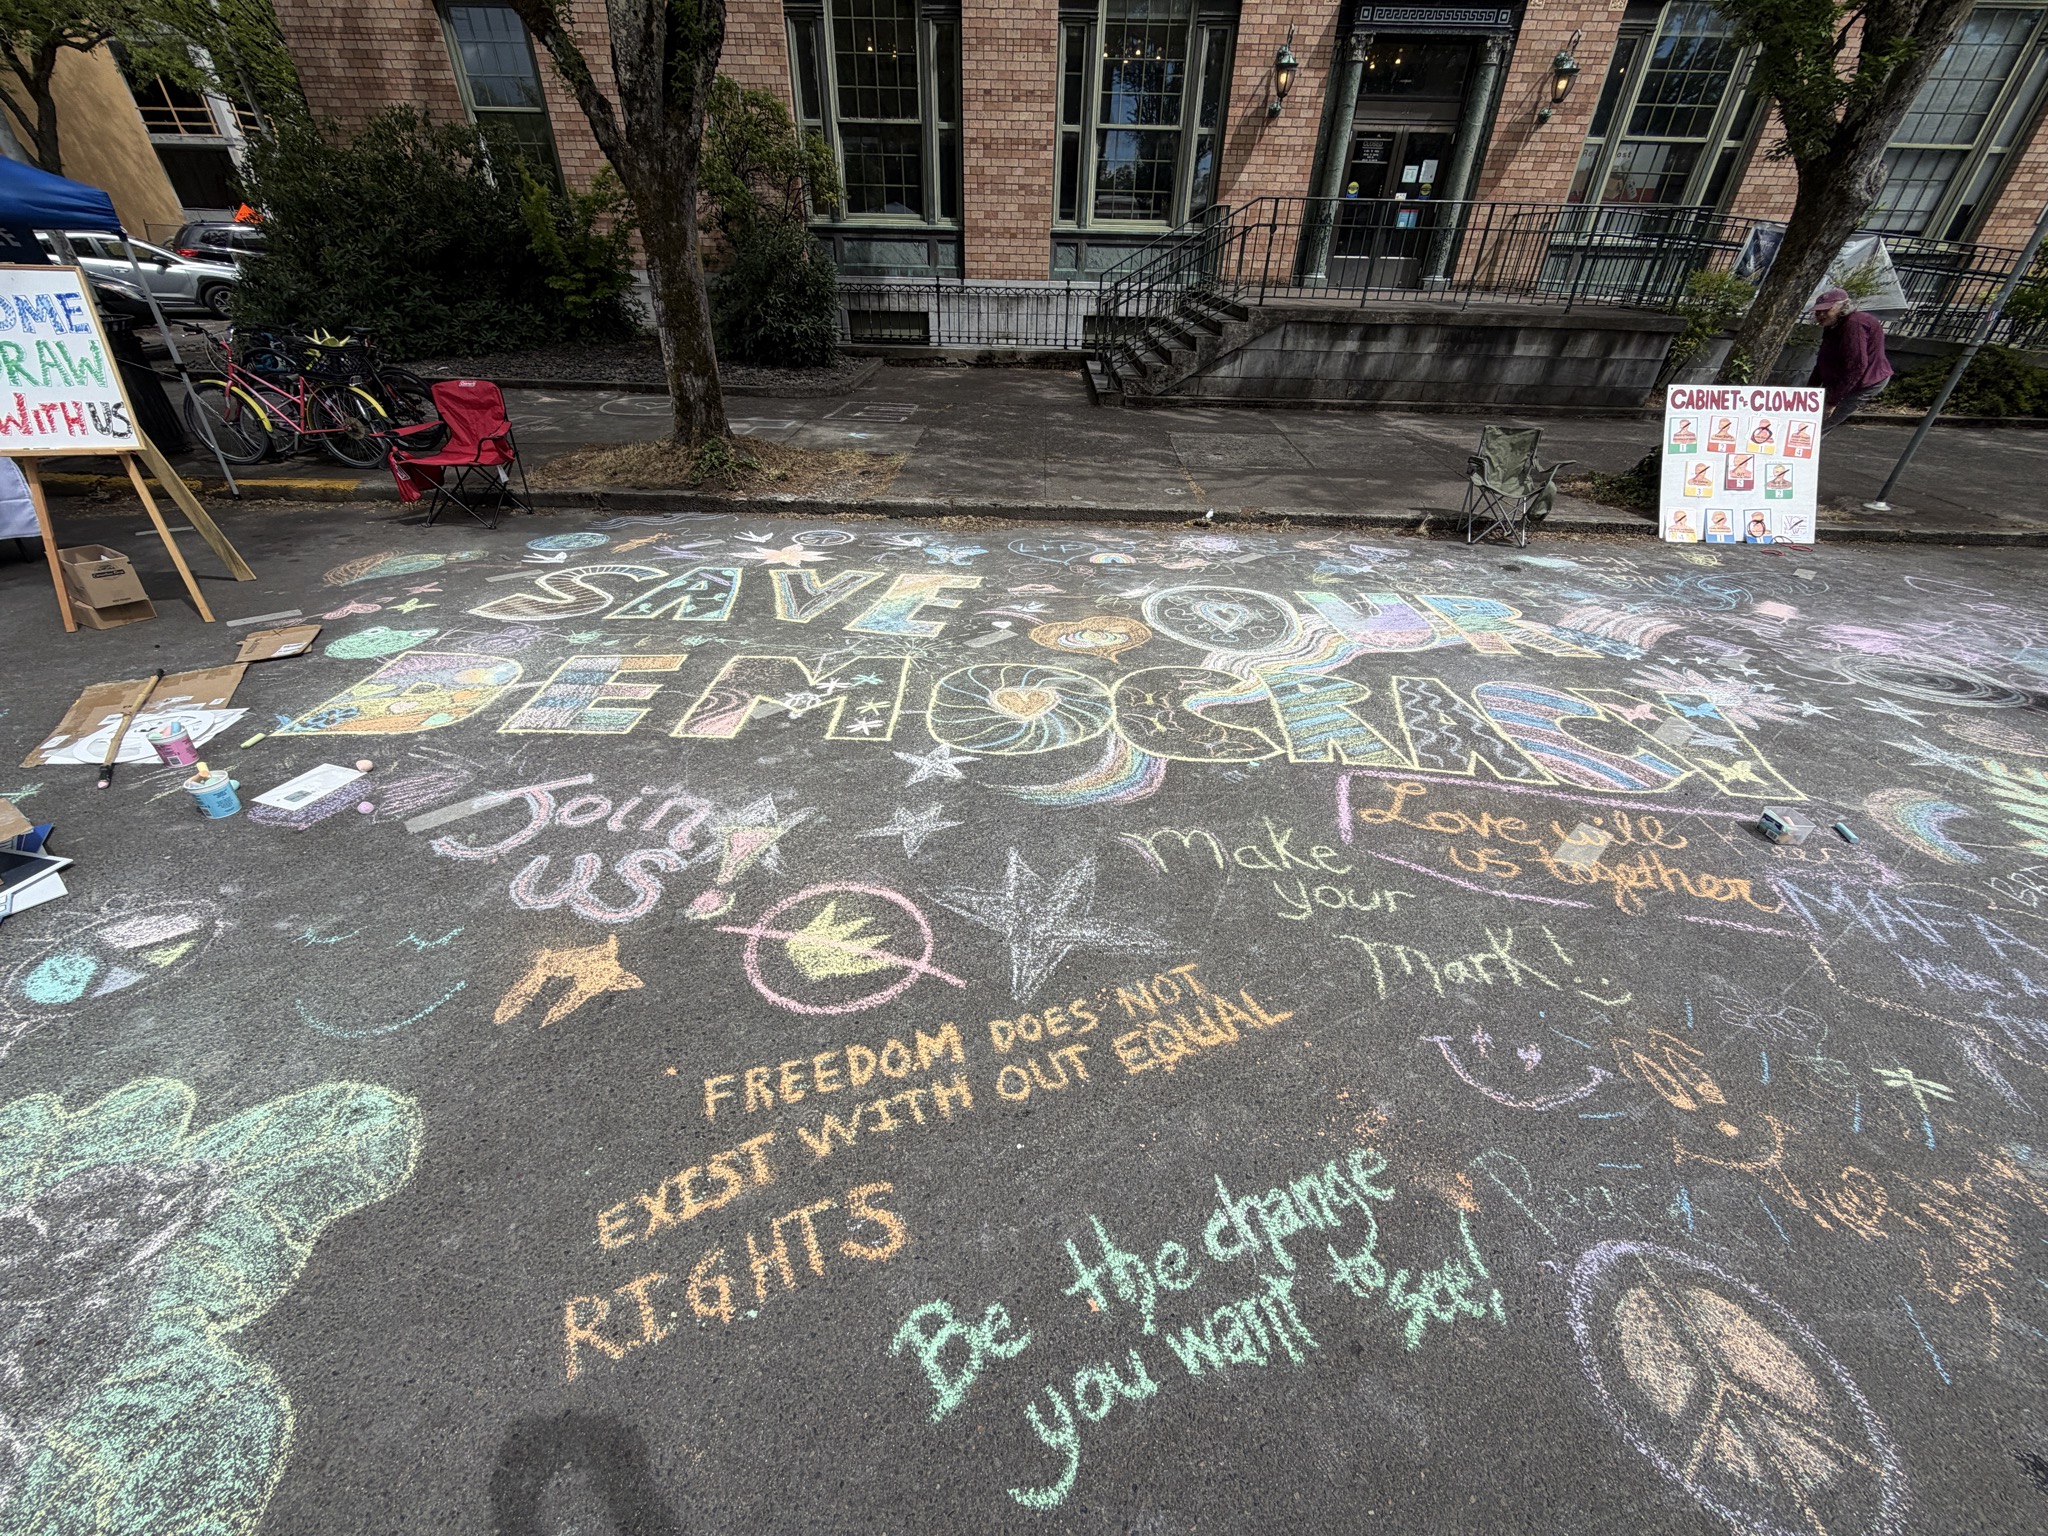 OME
DRAW
WITH US
CABINET of CLOWNS
L+P
SAVE OUR
DEMOCRACY
Join
us!
Love will Keep
us together
Make
your
mark!
FREEDOM DOES NOT
EXIST WITH OUT EQUAL
RIGHTS
Be the change
you want to see!